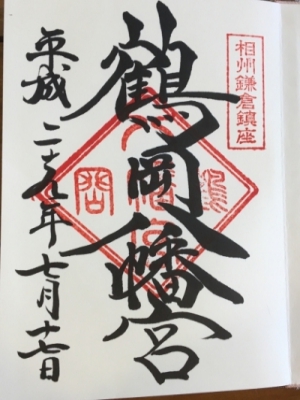 相州鎌倉鎮座
鶴岡八幡宮
平成二十九年七月十七日